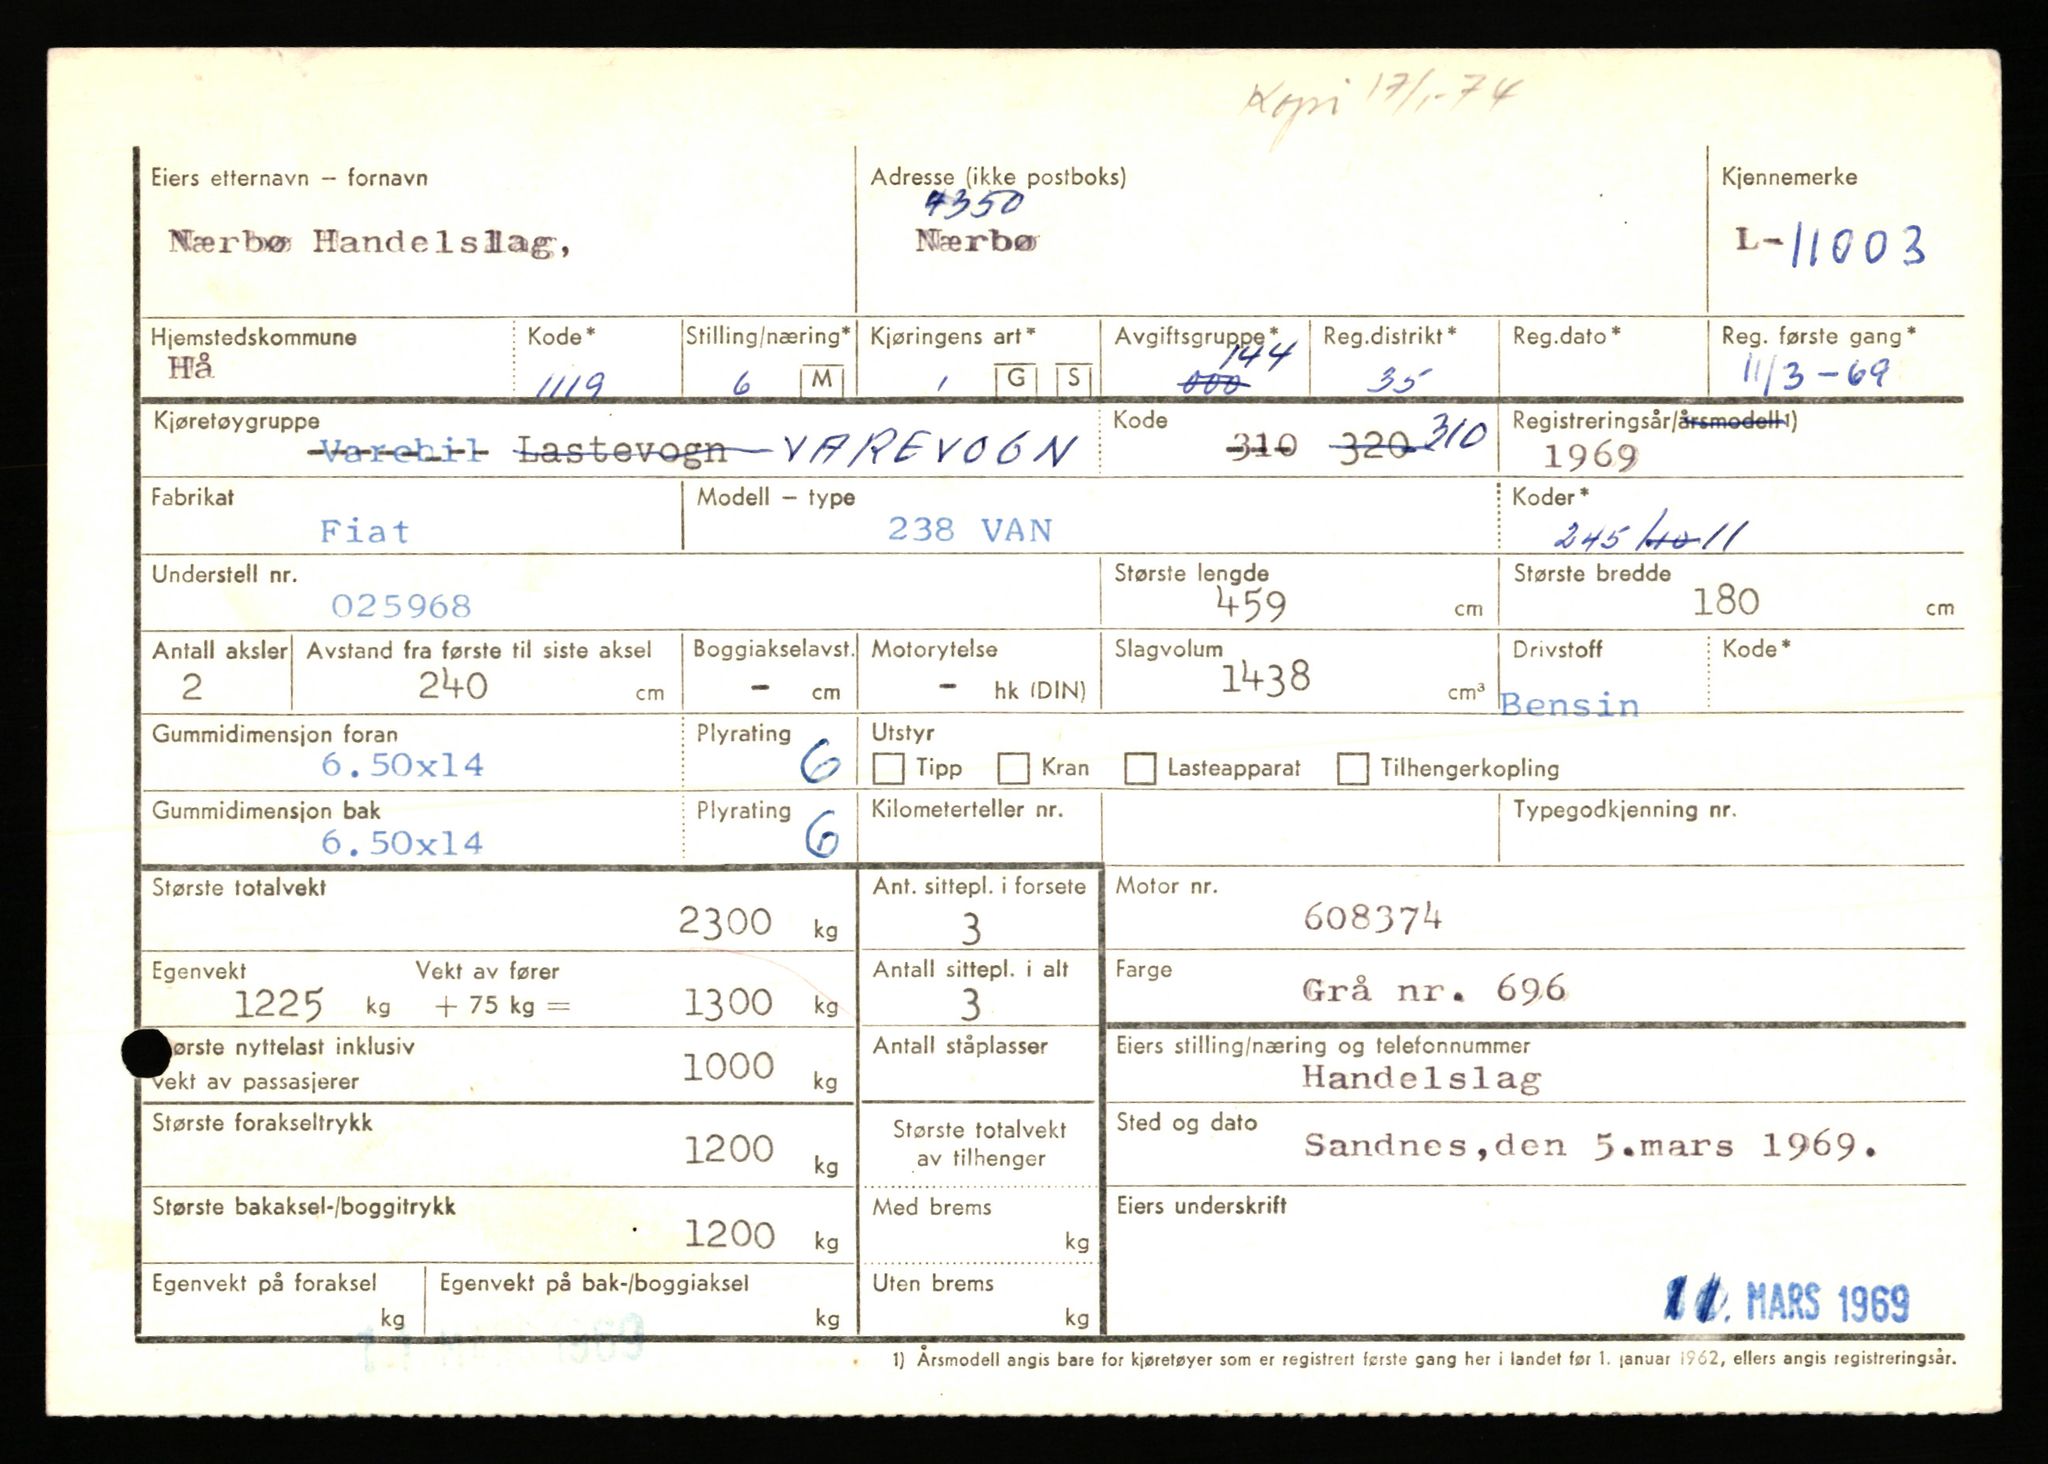 Kopi 17/1-74
Eiers etternavn – fornavn
Nærbø Handelslag,
Adresse (ikke postboks)
4350
Nærbø
Kjennemerke
L-11003
Hjemstedskommune
Hå
Kode*
1119
Stilling/næring*
6 M
Kjøringens art*
1 G S
Avgiftsgruppe*
144
000
Reg.distrikt*
35
Reg.dato*
Reg. første gang*
11/3-69
Kjøretøygruppe
Varebil Lastevogn VAREVOGN
Kode
310 320 310
Registreringsår/årsmodell1)
1969
Fabrikat
Fiat
Modell – type
238 VAN
Koder*
245/40 11
Understell nr.
025968
Største lengde
459 cm
Største bredde
180 cm
Antall aksler
2
Avstand fra første til siste aksel
240 cm
Boggiakselavst.
- cm
Motorytelse
- hk (DIN)
Slagvolum
1438 cm³
Drivstoff
Bensin
Kode*
Gummidimensjon foran
6.50x14
Plyrating
6
Utstyr
Tipp Kran Lasteapparat Tilhengerkopling
Gummidimensjon bak
6.50x14
Plyrating
6
Kilometerteller nr.
Typegodkjenning nr.
Største totalvekt
2300 kg
Ant. sittepl. i forsete
3
Motor nr.
608374
Egenvekt Vekt av fører
1225 kg + 75 kg = 1300 kg
Antall sittepl. i alt
3
Farge
Grå nr. 696
ørste nyttelast inklusiv
vekt av passasjerer
1000 kg
Antall ståplasser
Eiers stilling/næring og telefonnummer
Handelslag
Største forakseltrykk
1200 kg
Største totalvekt
av tilhenger
Sted og dato
Sandnes,den 5.mars 1969.
Største bakaksel-/boggitrykk
1200 kg
Med brems
kg
Eiers underskrift
Egenvekt på foraksel
kg
Egenvekt på bak-/boggiaksel
kg
Uten brems
kg
11. MARS 1969
1) Årsmodell angis bare for kjøretøyer som er registrert første gang her i landet før 1. januar 1962, ellers angis registreringsår.